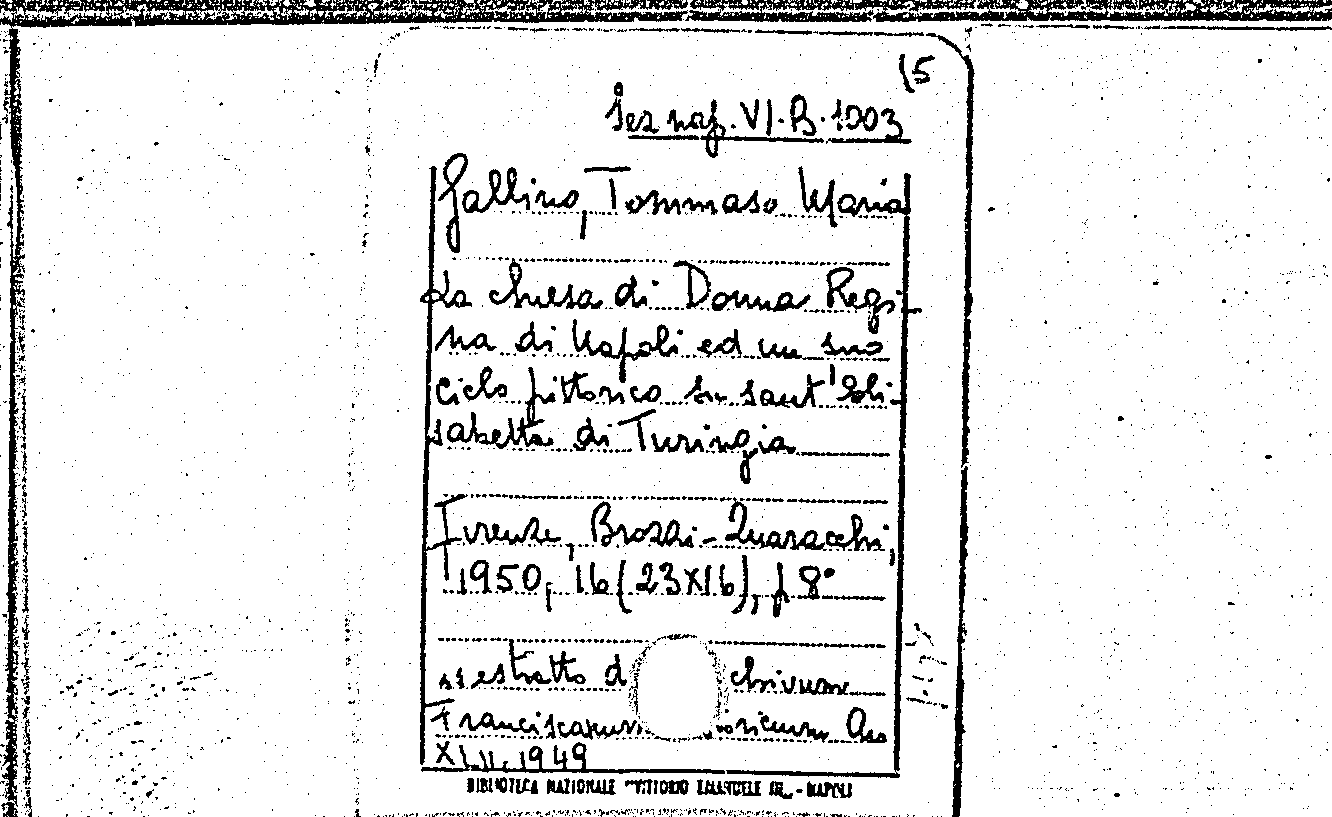 15
Sez nap. VI.B.1003
Gallino, Tommaso Maria
La chiesa di Donna Regi-
na di Napoli ed un suo
ciclo pittorico su sant'Eli-
sabetta di Turingia
Firenze, Brozzi-Quaracchi,
1950, 16 (23x16), p 8°
estratto d chivum
Franciscanum oricum
1949
BIBLIOTECA NAZIONALE "VITTORIO EMANUELE III" - NAPOLI